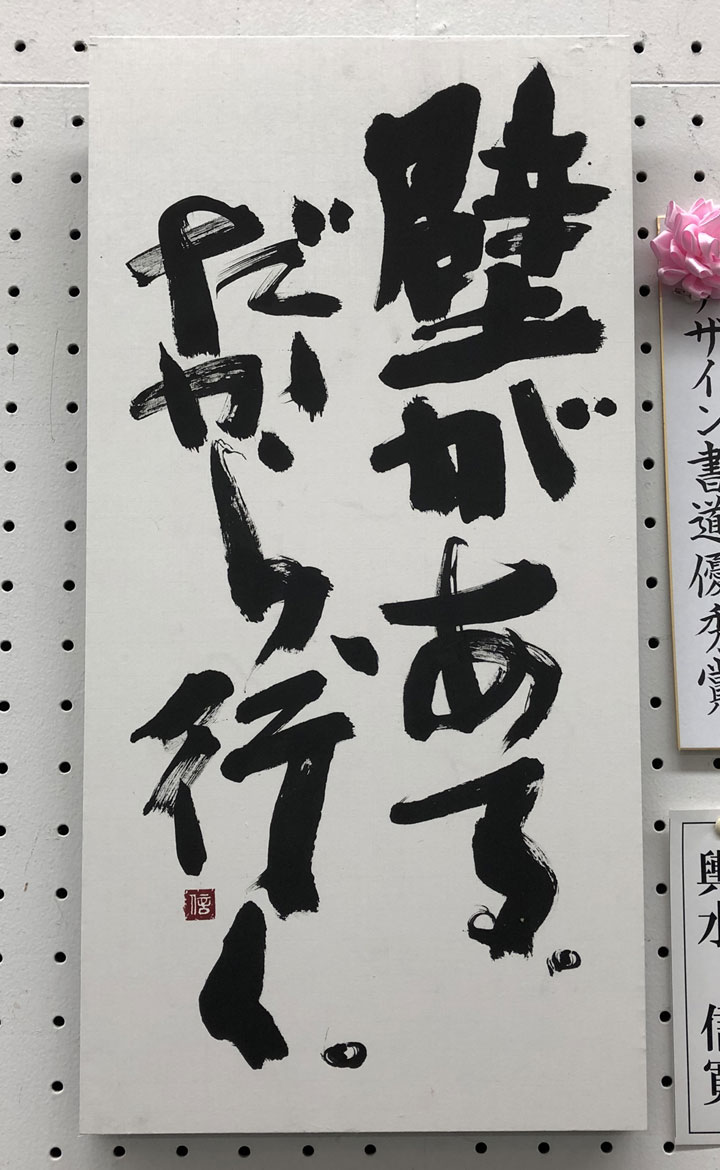 壁がある。
だから行く。
信
デザイン書道優秀賞
輿水 信實